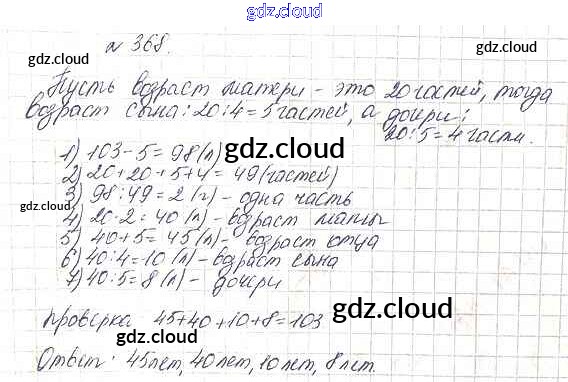 gdz.cloud
gdz.cloud
gdz.cloud
№ 368.
Пусть возраст матери - это 20 частей, тогда
возраст сына: 20:4=5 частей, а дочери:
20:5=4 части.
gdz.cloud
1) 103-5=98(л)
2) 20+20+5+4=49(частей)
gdz.cloud
3) 98:49=2(г)- одна часть
gdz.cloud
4) 20·2=40(л)- возраст мамы
5) 40+5=45(л)- возраст отца
6) 40:4=10(л)- возраст сына
7) 40:5=8(л)- дочери
gdz.cloud
проверка 45+40+10+8=103
gdz.cloud
gdz.cloud
Ответ: 45лет, 40лет, 10лет, 8лет.